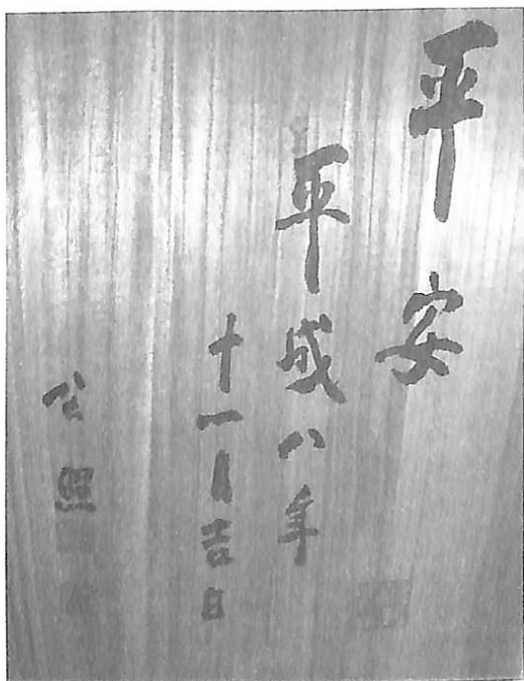 平安
平成八年
十一月吉日
公照